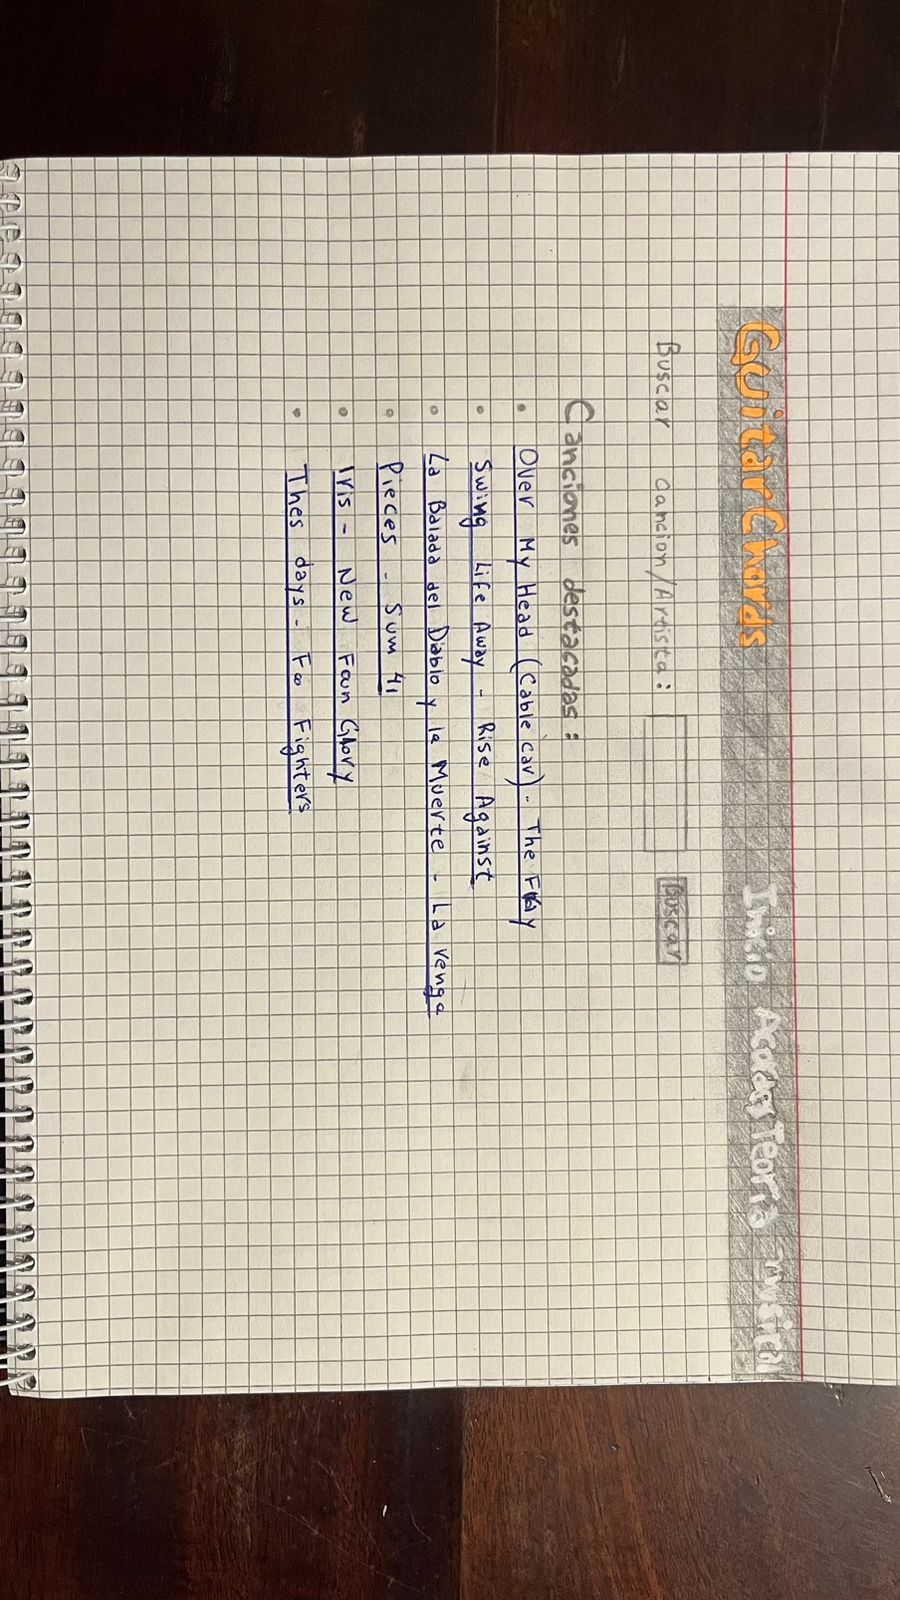 GuitarChords Inicio Acordes Teoria musical
Buscar cancion/Artista: Buscar
Canciones destacadas:
Over My Head (Cable car) - The Fray
Swing Life Away - Rise Against
La Balada del Diablo y la Muerte - La renga
Pieces - Sum 41
Iris - New Foun Glory
Thes days - Foo Fighters